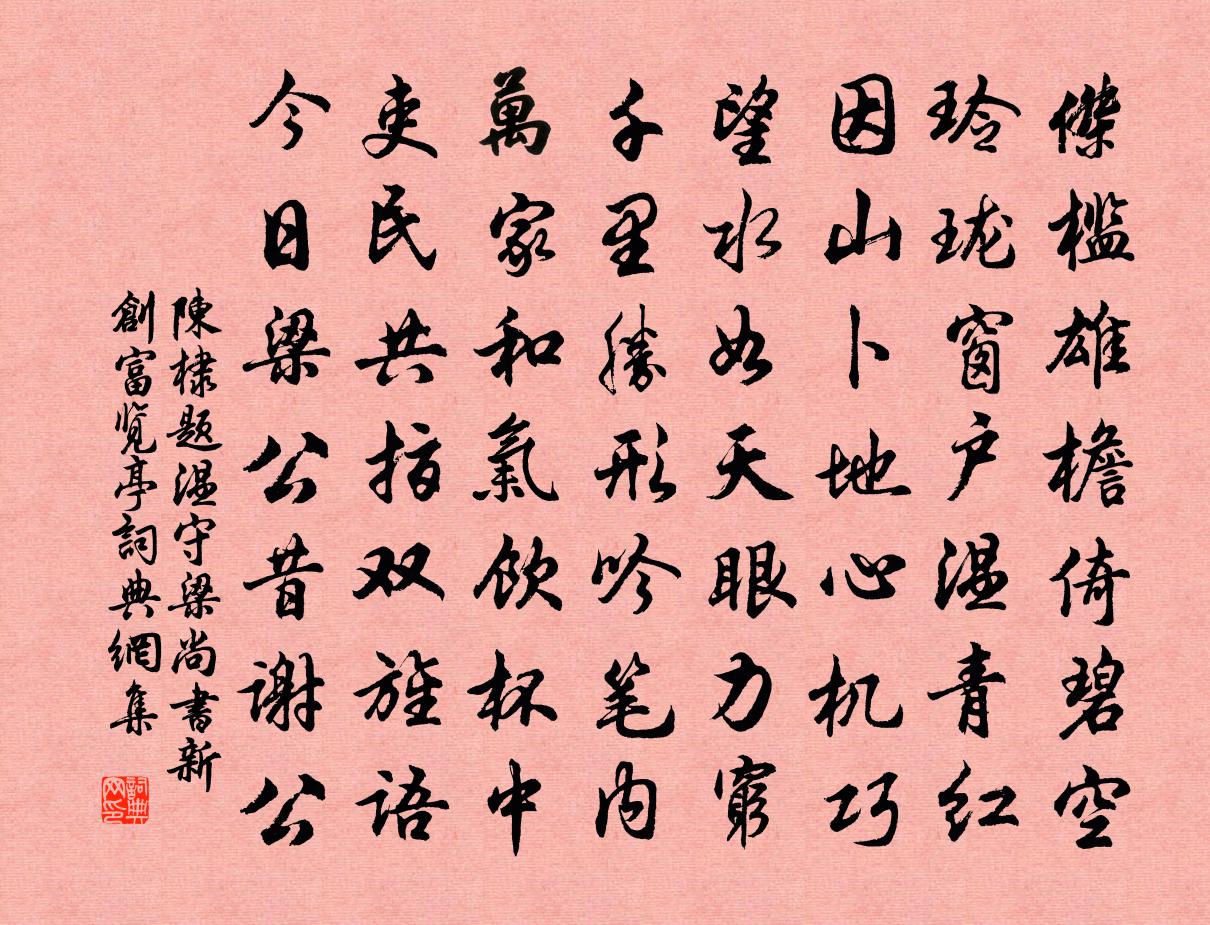 傑槛雄檐倚碧空
玲珑窗户湿青红
因山卜地心机巧
望水如天眼力窮
千里勝形吟笔内
萬家和氣飲杯中
吏民共指双旌语
今日梁公昔谢公
陳棣题温守梁尚書新
創富览亭詞典網集
詞典
网印